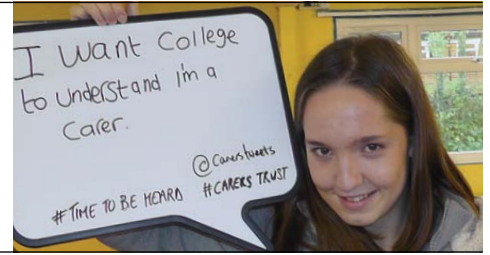 I Want College
to Understand i'm a
Carer.
@Carerstweets
#TIME TO BE HEARD #CARERS TRUST